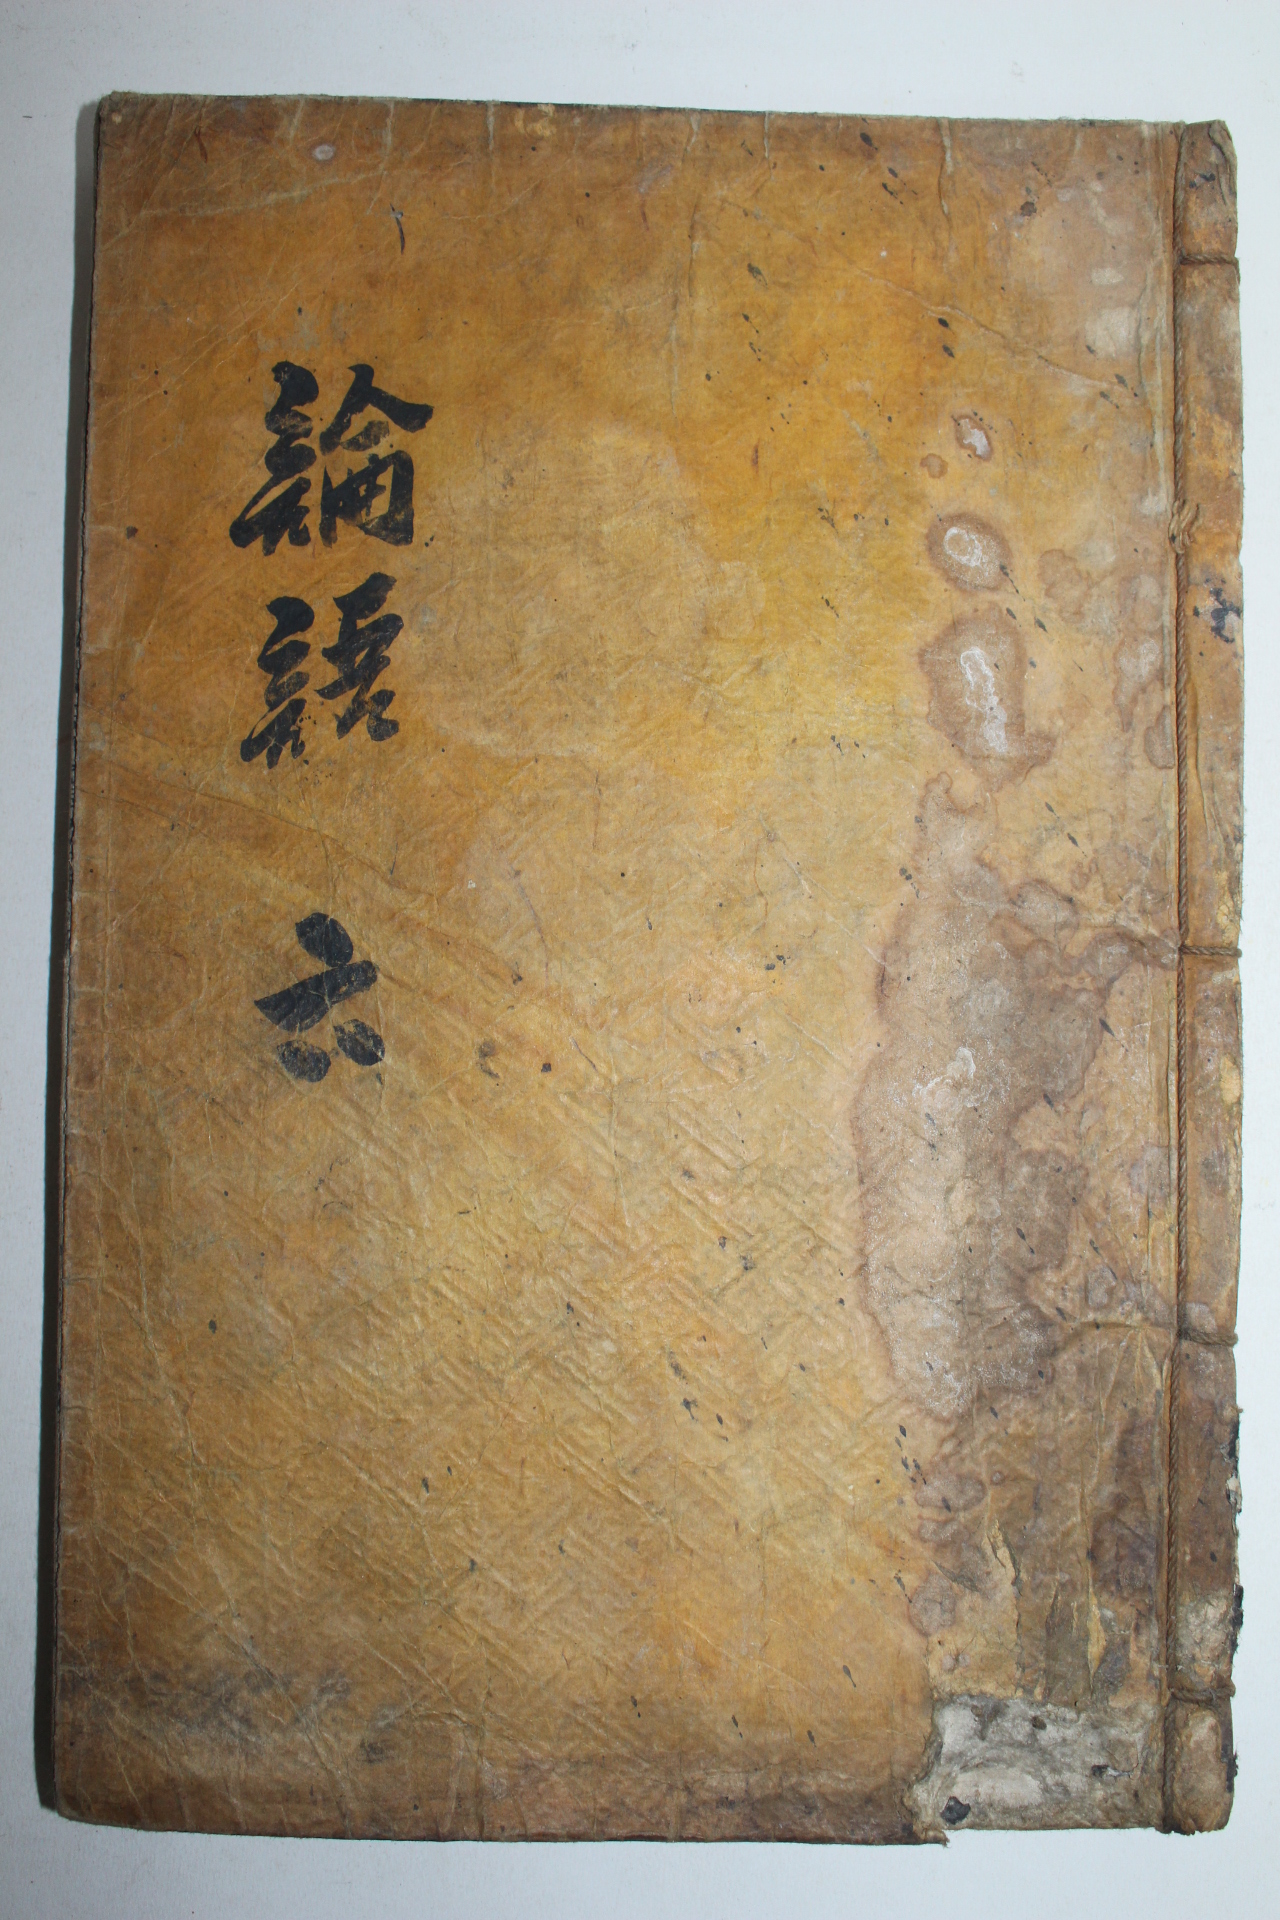 論語
六